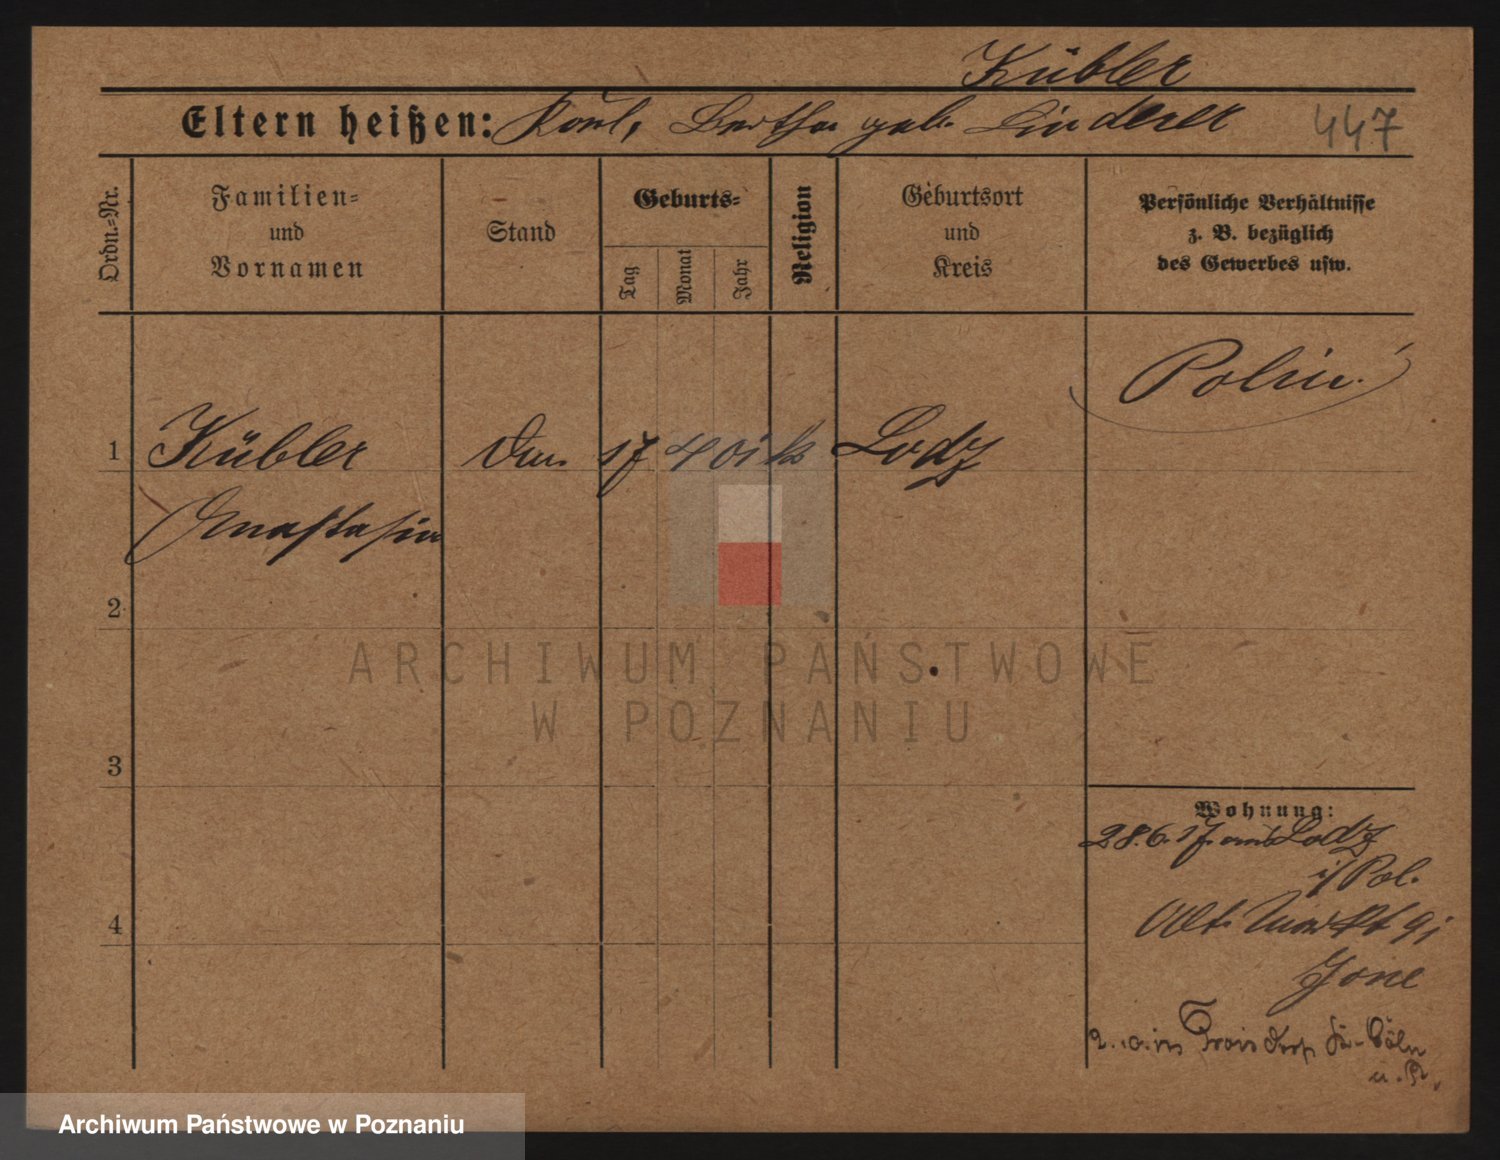 Kübler
Eltern heißen: Karl, Bertha geb. Linderer 447
Ordn.-Nr.
Familien-
und
Vornamen
Stand
Geburts-
Tag
Monat
Jahr
Religion
Geburtsort
und
Kreis
Persönliche Verhältnisse
z. B. bezüglich
des Gewerbes usw.
Polin
1 Kübler 17 4 01 Lodz
Anastasia
2
ARCHIWUM PAŃSTWOWE
W POZNANIU
3
Wohnung:
28.6.17. Lodz
i/Pol.
Alt. Markt 91
4
Troisdorf Cöln
Archiwum Państwowe w Poznaniu